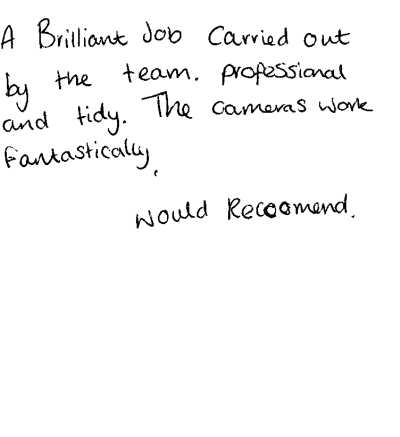 A Brilliant Job Carried out
by the team. professional
and tidy. The cameras work
Fantastically.
Would Recoomend.